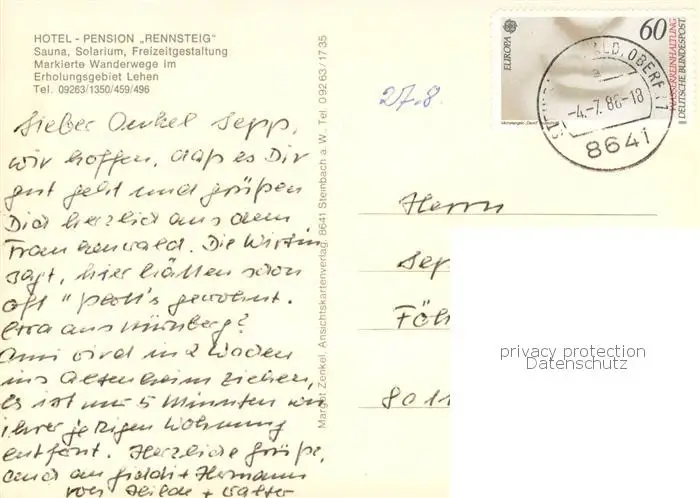 HOTEL - PENSION „RENNSTEIG“
Sauna, Solarium, Freizeitgestaltung
Markierte Wanderwege im
Erholungsgebiet Lehen
Tel. 09263/1350/459/496
Lieber Onkel Sepp,
wir hoffen, daß es Dir
gut geht und grüßen
Dich herzlich aus dem
Frankenwald. Die Wirtin
sagt, hier hätten schon
oft "
gewohnt.
Etwa aus Nürnberg?
wird in 2 Wochen
ins Altenheim ziehen,
es ist nur 5 Minuten von
ihrer jetzigen Wohnung
entfernt. Herzliche Grüße,
auch an
+ Hermann
von Hilde + Walter
Margot Zenkel, Ansichtskartenverlag, 8641 Steinbach a. W., Tel. 09263/1735
27.8.
EUROPA
60
WASSERREINHALTUNG
DEUTSCHE BUNDESPOST
-4.-7.86-18
8641
Herrn
Sep
Föh
8011
privacy protection
Datenschutz